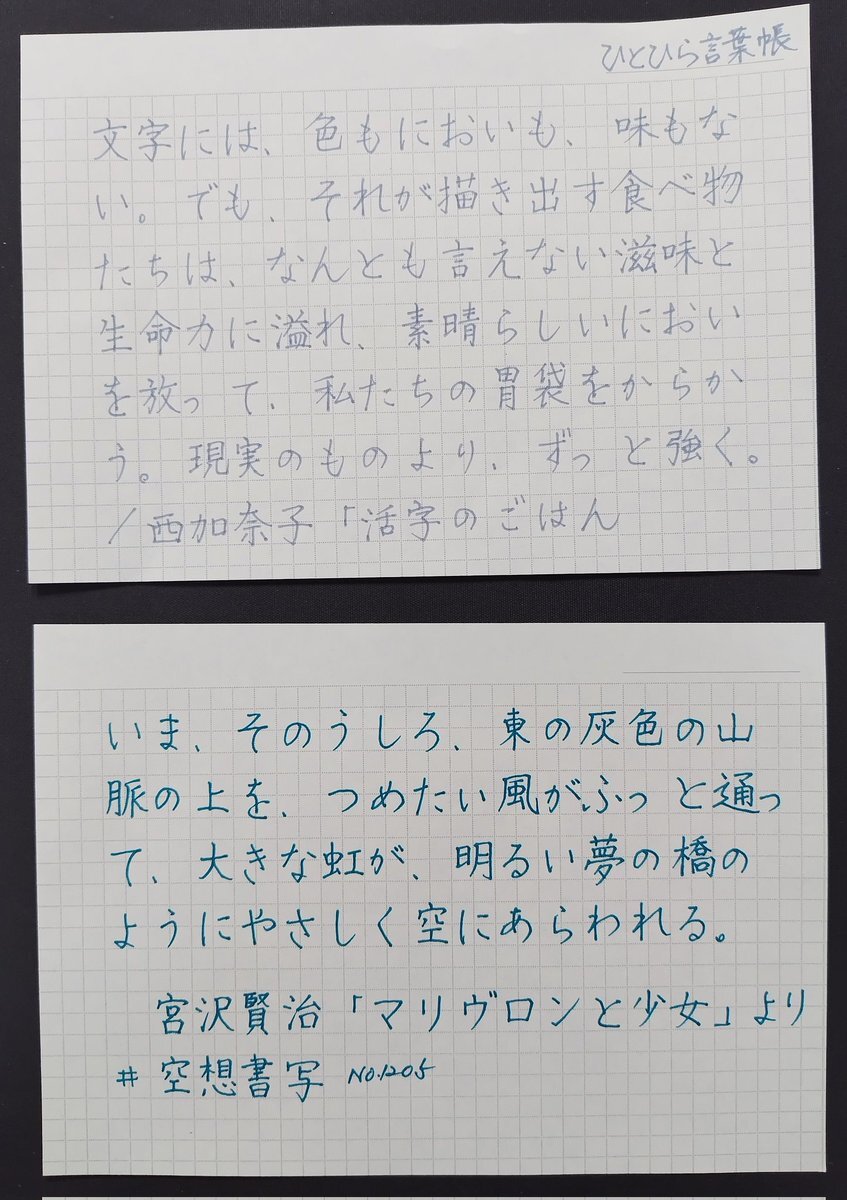 ひとひら言葉帳
文字には、色もにおいも、味もな
い。でも、それが描き出す食べ物
たちは、なんとも言えない滋味と
生命力に溢れ、素晴らしいにおい
を放って、私たちの胃袋をからか
う。現実のものより、ずっと強く。
/西加奈子「活字のごはん
いま、そのうしろ、東の灰色の山
脈の上を、つめたい風がふっと通っ
て、大きな虹が、明るい夢の橋の
ようにやさしく空にあらわれる。
宮沢賢治「マリヴロンと少女」より
#空想書写 NO.1205